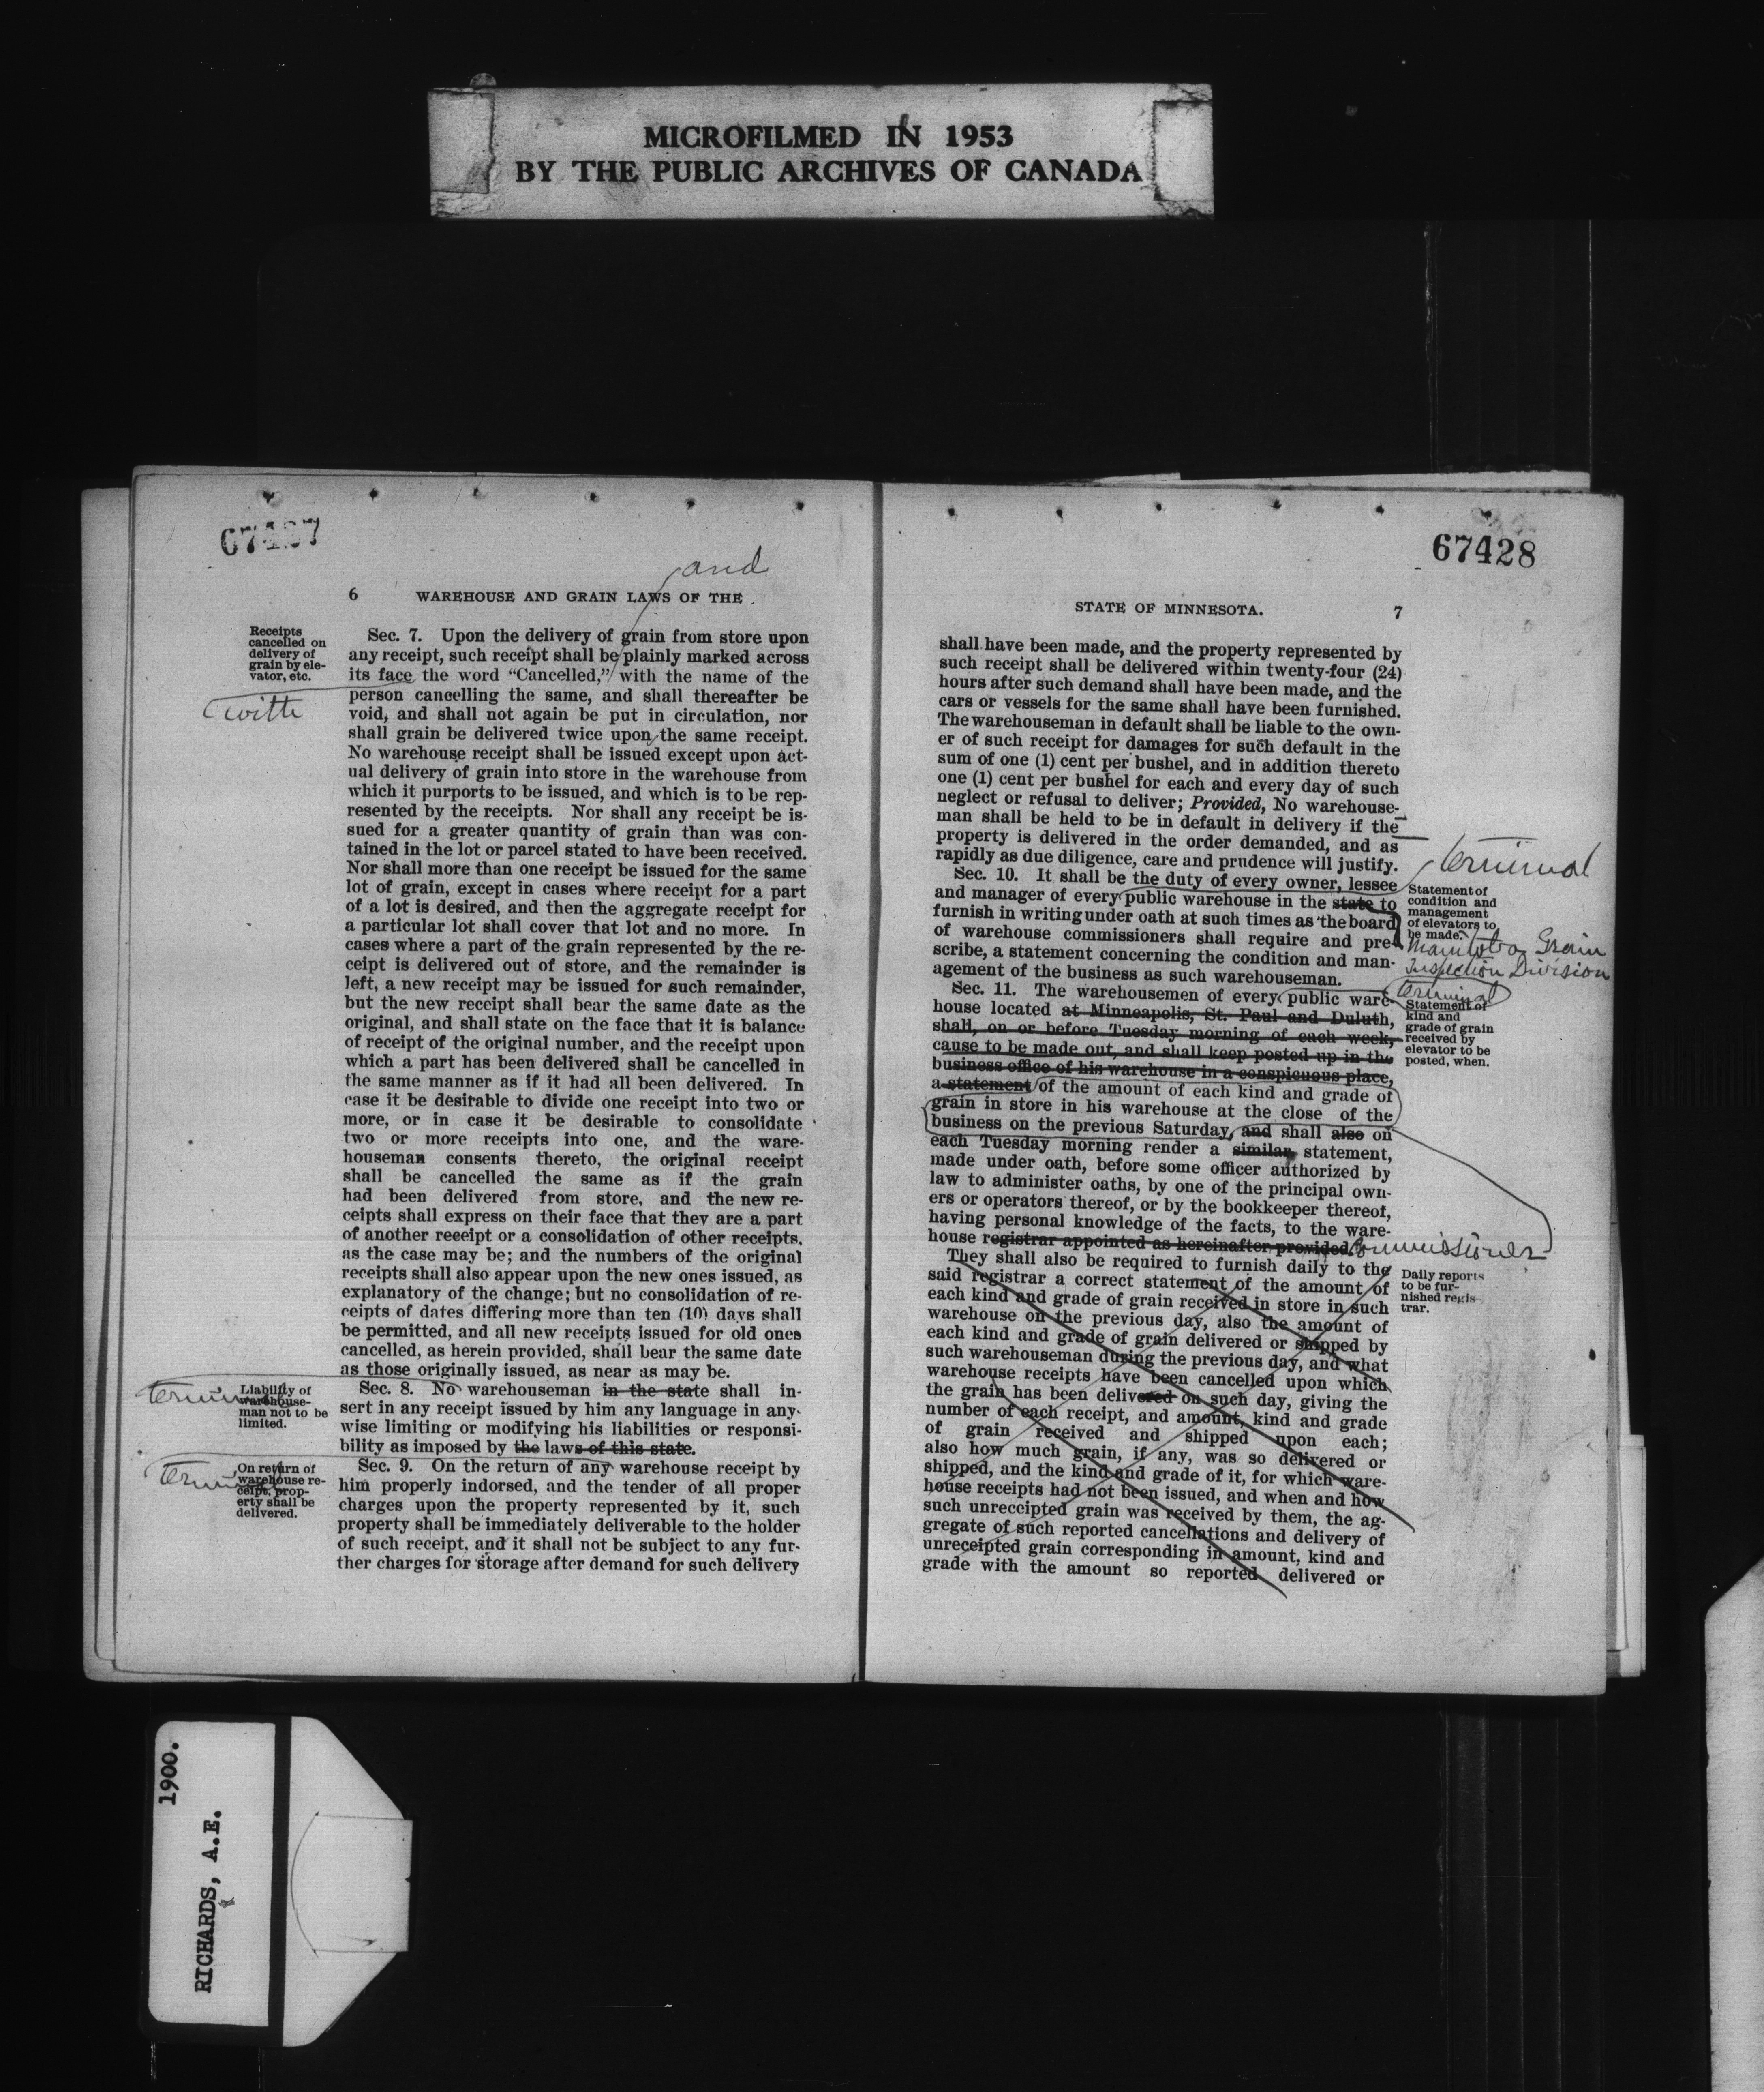 MICROFILMED IN 1953
BY THE PUBLIC ARCHIVES OF CANADA
and
6 WAREHOUSE AND GRAIN LAWS OF THE
Receipts
cancelled on
delivery of
grain by ele-
vator, etc.
with
Sec. 7. Upon the delivery of grain from store upon
any receipt, such receipt shall be plainly marked across
its face the word “Cancelled,” with the name of the
person cancelling the same, and shall thereafter be
void, and shall not again be put in circulation, nor
shall grain be delivered twice upon the same receipt.
No warehouse receipt shall be issued except upon act-
ual delivery of grain into store in the warehouse from
which it purports to be issued, and which is to be rep-
resented by the receipts. Nor shall any receipt be is-
sued for a greater quantity of grain than was con-
tained in the lot or parcel stated to have been received.
Nor shall more than one receipt be issued for the same
lot of grain, except in cases where receipt for a part
of a lot is desired, and then the aggregate receipt for
a particular lot shall cover that lot and no more. In
cases where a part of the grain represented by the re-
ceipt is delivered out of store, and the remainder is
left, a new receipt may be issued for such remainder,
but the new receipt shall bear the same date as the
original, and shall state on the face that it is balance
of receipt of the original number, and the receipt upon
which a part has been delivered shall be cancelled in
the same manner as if it had all been delivered. In
case it be desirable to divide one receipt into two or
more, or in case it be desirable to consolidate
two or more receipts into one, and the ware-
houseman consents thereto, the original receipt
shall be cancelled the same as if the grain
had been delivered from store, and the new re-
ceipts shall express on their face that they are a part
of another receipt or a consolidation of other receipts,
as the case may be; and the numbers of the original
receipts shall also appear upon the new ones issued, as
explanation of the change; but no consolidation of re-
ceipts of dates differing more than ten (10) days shall
be permitted, and all new receipts issued for old ones
cancelled, as herein provided, shall bear the same date
as those originally issued, as near as may be.
Liability of
warehouse-
man not to be
limited.
Sec. 8. No warehouseman in the state shall in-
sert in any receipt issued by him any language in any-
wise limiting or modifying his liabilities or responsi-
bility as imposed by the laws of this state.
On return of
warehouse re-
ceipt, prop-
erty shall be
delivered.
Sec. 9. On the return of any warehouse receipt by
him properly indorsed, and the tender of all proper
charges upon the property represented by it, such
property shall be immediately deliverable to the holder
of such receipt, and it shall not be subject to any fur-
ther charges for storage after demand for such delivery
67428
STATE OF MINNESOTA. 7
shall have been made, and the property represented by
such receipt shall be delivered within twenty-four (24)
hours after such demand shall have been made, and the
cars or vessels for the same shall have been furnished.
The warehouseman in default shall be liable to the own-
er of such receipt for damages for such default in the
sum of one (1) cent per bushel, and in addition thereto
one (1) cent per bushel for each and every day of such
neglect or refusal to deliver; Provided, No warehouse-
man shall be held to be in default in delivery if the
property is delivered in the order demanded, and as
rapidly as due diligence, care and prudence will justify.
terminal
Sec. 10. It shall be the duty of every owner, lessee
and manager of every public warehouse in the state to
furnish in writing under oath at such times as the board
of warehouse commissioners shall require and pre-
scribe, a statement concerning the condition and man-
agement of the business as such warehouseman.
Statement of
condition and
management
of elevators to
be made.
Manitoba Grain
Inspection Division
terminal
Sec. 11. The warehousemen of every public ware-
house located at Minneapolis, St. Paul and Duluth,
shall, on or before Tuesday morning of each week,
cause to be made out, and shall keep posted up in the
business office of his warehouse in a conspicuous place,
a statement of the amount of each kind and grade of
grain in store in his warehouse at the close of the
business on the previous Saturday, and shall also on
each Tuesday morning render a similar statement,
made under oath, before some officer authorized by
law to administer oaths, by one of the principal own-
ers or operators thereof, or by the bookkeeper thereof,
having personal knowledge of the facts, to the ware-
house registrar appointed as hereinafter provided.
Commissioner
Statement of
kind and
grade of grain
received by
elevator to be
posted, when.
They shall also be required to furnish daily to the
said registrar a correct statement of the amount of
each kind and grade of grain received in store in such
warehouse on the previous day, also the amount of
each kind and grade of grain delivered or shipped by
such warehouseman during the previous day, and what
warehouse receipts have been cancelled upon which
the grain has been delivered on such day, giving the
number of each receipt, and amount, kind and grade
of grain received and shipped upon each;
also how much grain, if any, was so delivered or
shipped, and the kind and grade of it, for which ware-
house receipts had not been issued, and when and how
such unreceipted grain was received by them, the ag-
gregate of such reported cancellations and delivery of
unreceipted grain corresponding in amount, kind and
grade with the amount so reported delivered or
Daily reports
to be fur-
nished regis-
trar.
1900.
RICHARDS, A.E.